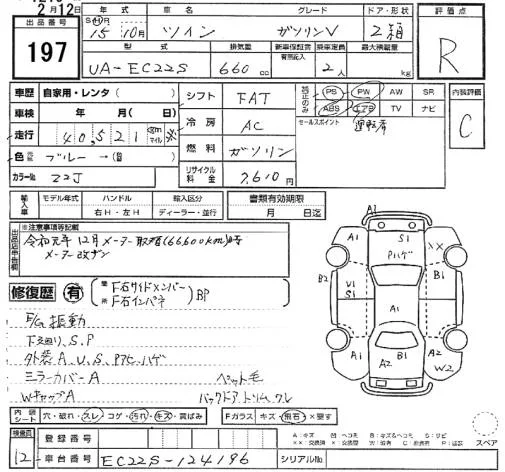 2月12日
出品番号 197
年式 S H R 15年10月
車名 ツイン
グレード ガソリンV
ドア・形状 2 箱
型式 UA-EC22S
排気量 660 cc
新車保証書 有 記入
乗車定員 2人
最大積載量 kg
評価点 R
車歴 自家用・レンタ( )
車検 年 月( 日)
走行 40,521 km マイル ※
色 ブルー→(
カラーNo. ZZJ
シフト FAT
冷房 AC
燃料 ガソリン
リサイクル料金 7,610
純正のみ PS PW AW SR
ABS エアB TV ナビ
運転席
セールスポイント
内装評価 C
輸入車 モデル年式 ハンドル 右H・左H 輸入区分 ディーラー・並行
書類有効期限 月 日迄
※注意事項等記載
令和元年12月メーター取替(66,600km)時
メーター改ザン
修復歴 有
箇所 F右サイドメンバー
F右インパネ BP
E/G振動
下廻り、S.P
外装A、U、S、Pアセ、ハゲ
ミラーカバーA
WキャップA
ペット毛
バックドアトリムワレ
A1
A1 S1 XX
Pハゲ
B2 U1 S1 B1
A1
A1 B1 A2
A2 W2
内装シート 穴・破れ・スレ・コゲ・汚れ・キズ・黄ばみ
Fガラス キズ・飛石・×要す
スペア
検査員 12
登録番号
車台番号 EC22S-124196
シリアルNo.